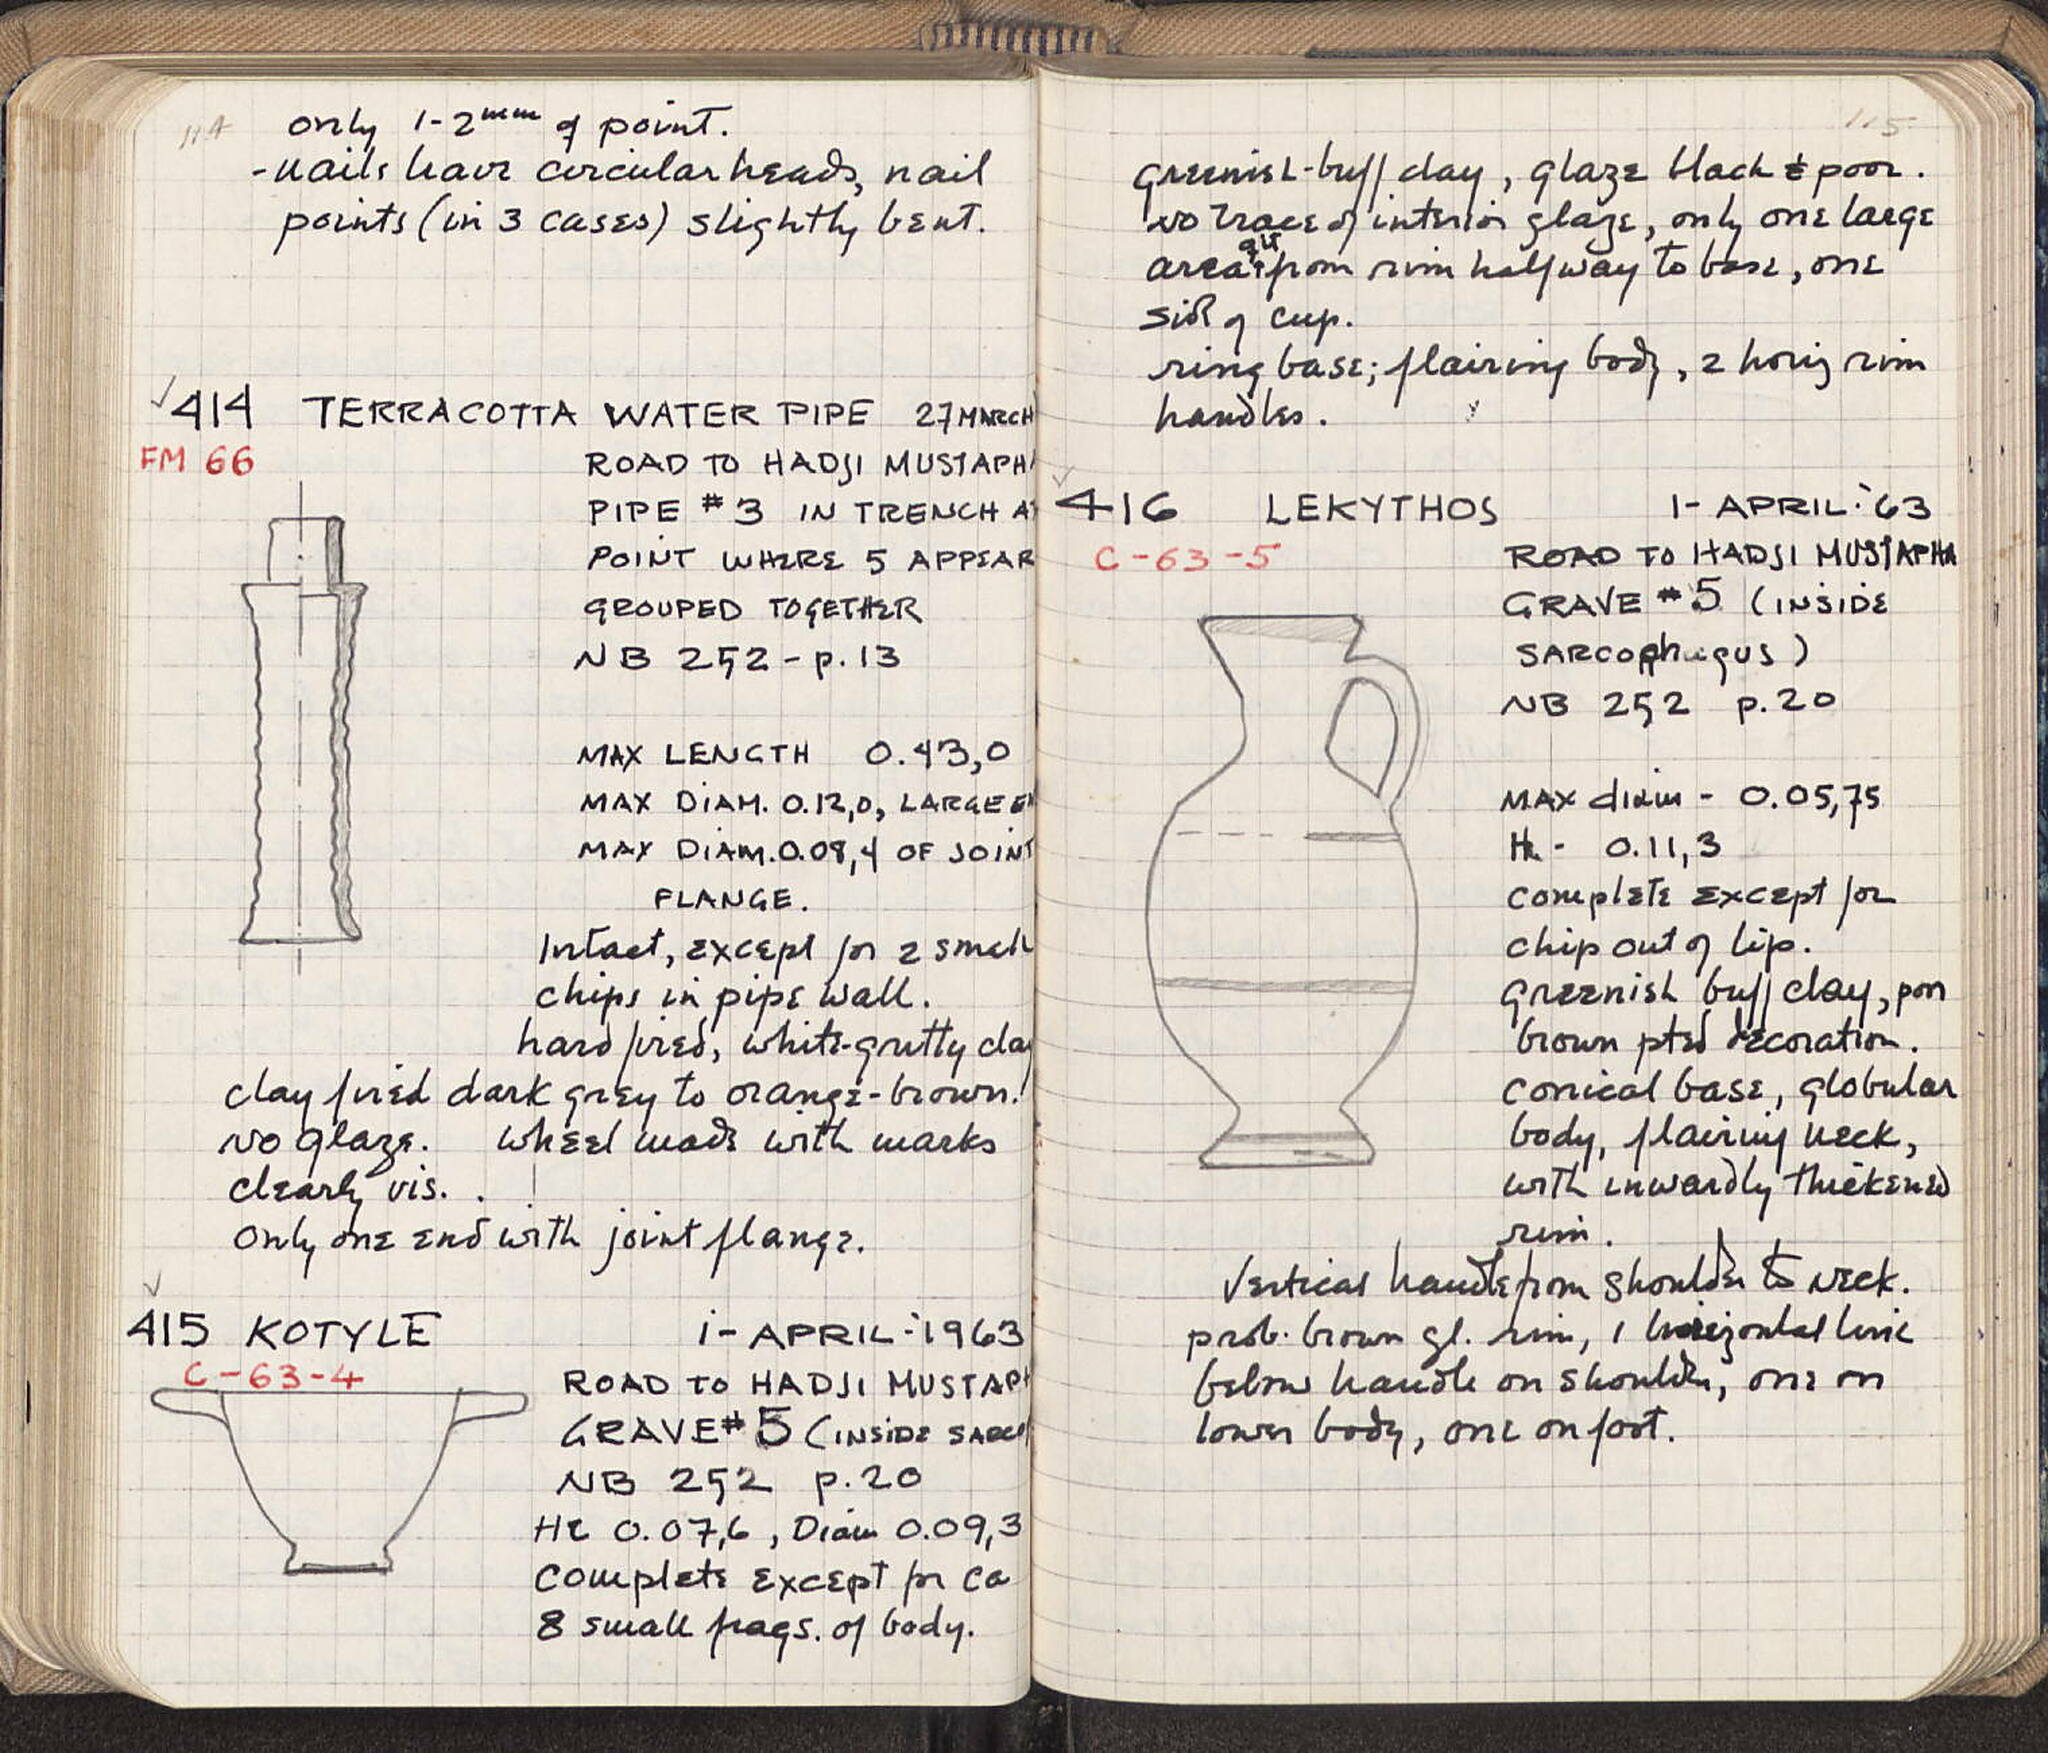 114
only 1-2mm of point.
-nails have circular heads, nail
points (in 3 cases) slightly bent.
✓414 TERRACOTTA WATER PIPE 27 MARCH
FM 66
ROAD TO HADJI MUSTAPHA
PIPE #3 IN TRENCH AT
POINT WHERE 5 APPEAR
GROUPED TOGETHER
NB 252 - p. 13
MAX LENGTH 0.43,0
MAX DIAM. 0.12,0, LARGE EN
MAX DIAM. 0.08,4 OF JOINT
FLANGE.
Intact, except for 2 small
chips in pipe wall.
hard fired, white-gritty clay
clay fired dark grey to orange-brown.
no glaze. wheel made with marks
clearly vis.
only one end with joint flange.
✓
415 KOTYLE 1-APRIL-1963
C-63-4
ROAD TO HADJI MUSTAPH
GRAVE #5 (INSIDE SARCO
NB 252 p. 20
Ht 0.07,6, Diam 0.09,3
complete except for ca
8 small frags. of body.
115
greenish-buff clay, glaze black & poor.
no trace of interior glaze, only one large
area ext from rim halfway to base, one
side of cup.
ring base; flairing body, 2 horiz rim
handles.
✓416 LEKYTHOS 1-APRIL-'63
C-63-5
ROAD TO HADJI MUSTAPHA
GRAVE #5 (INSIDE
SARCOphagUS)
NB 252 p. 20
MAX diam - 0.05,75
Ht - 0.11,3
complete except for
chip out of lip.
greenish buff clay, poor
brown pted decoration.
conical base, globular
body, flairing neck,
with inwardly thickened
rim.
Vertical handle from shoulder to neck.
prob. brown gl. rim, 1 horizontal line
below handle on shoulder, one on
lower body, one on foot.